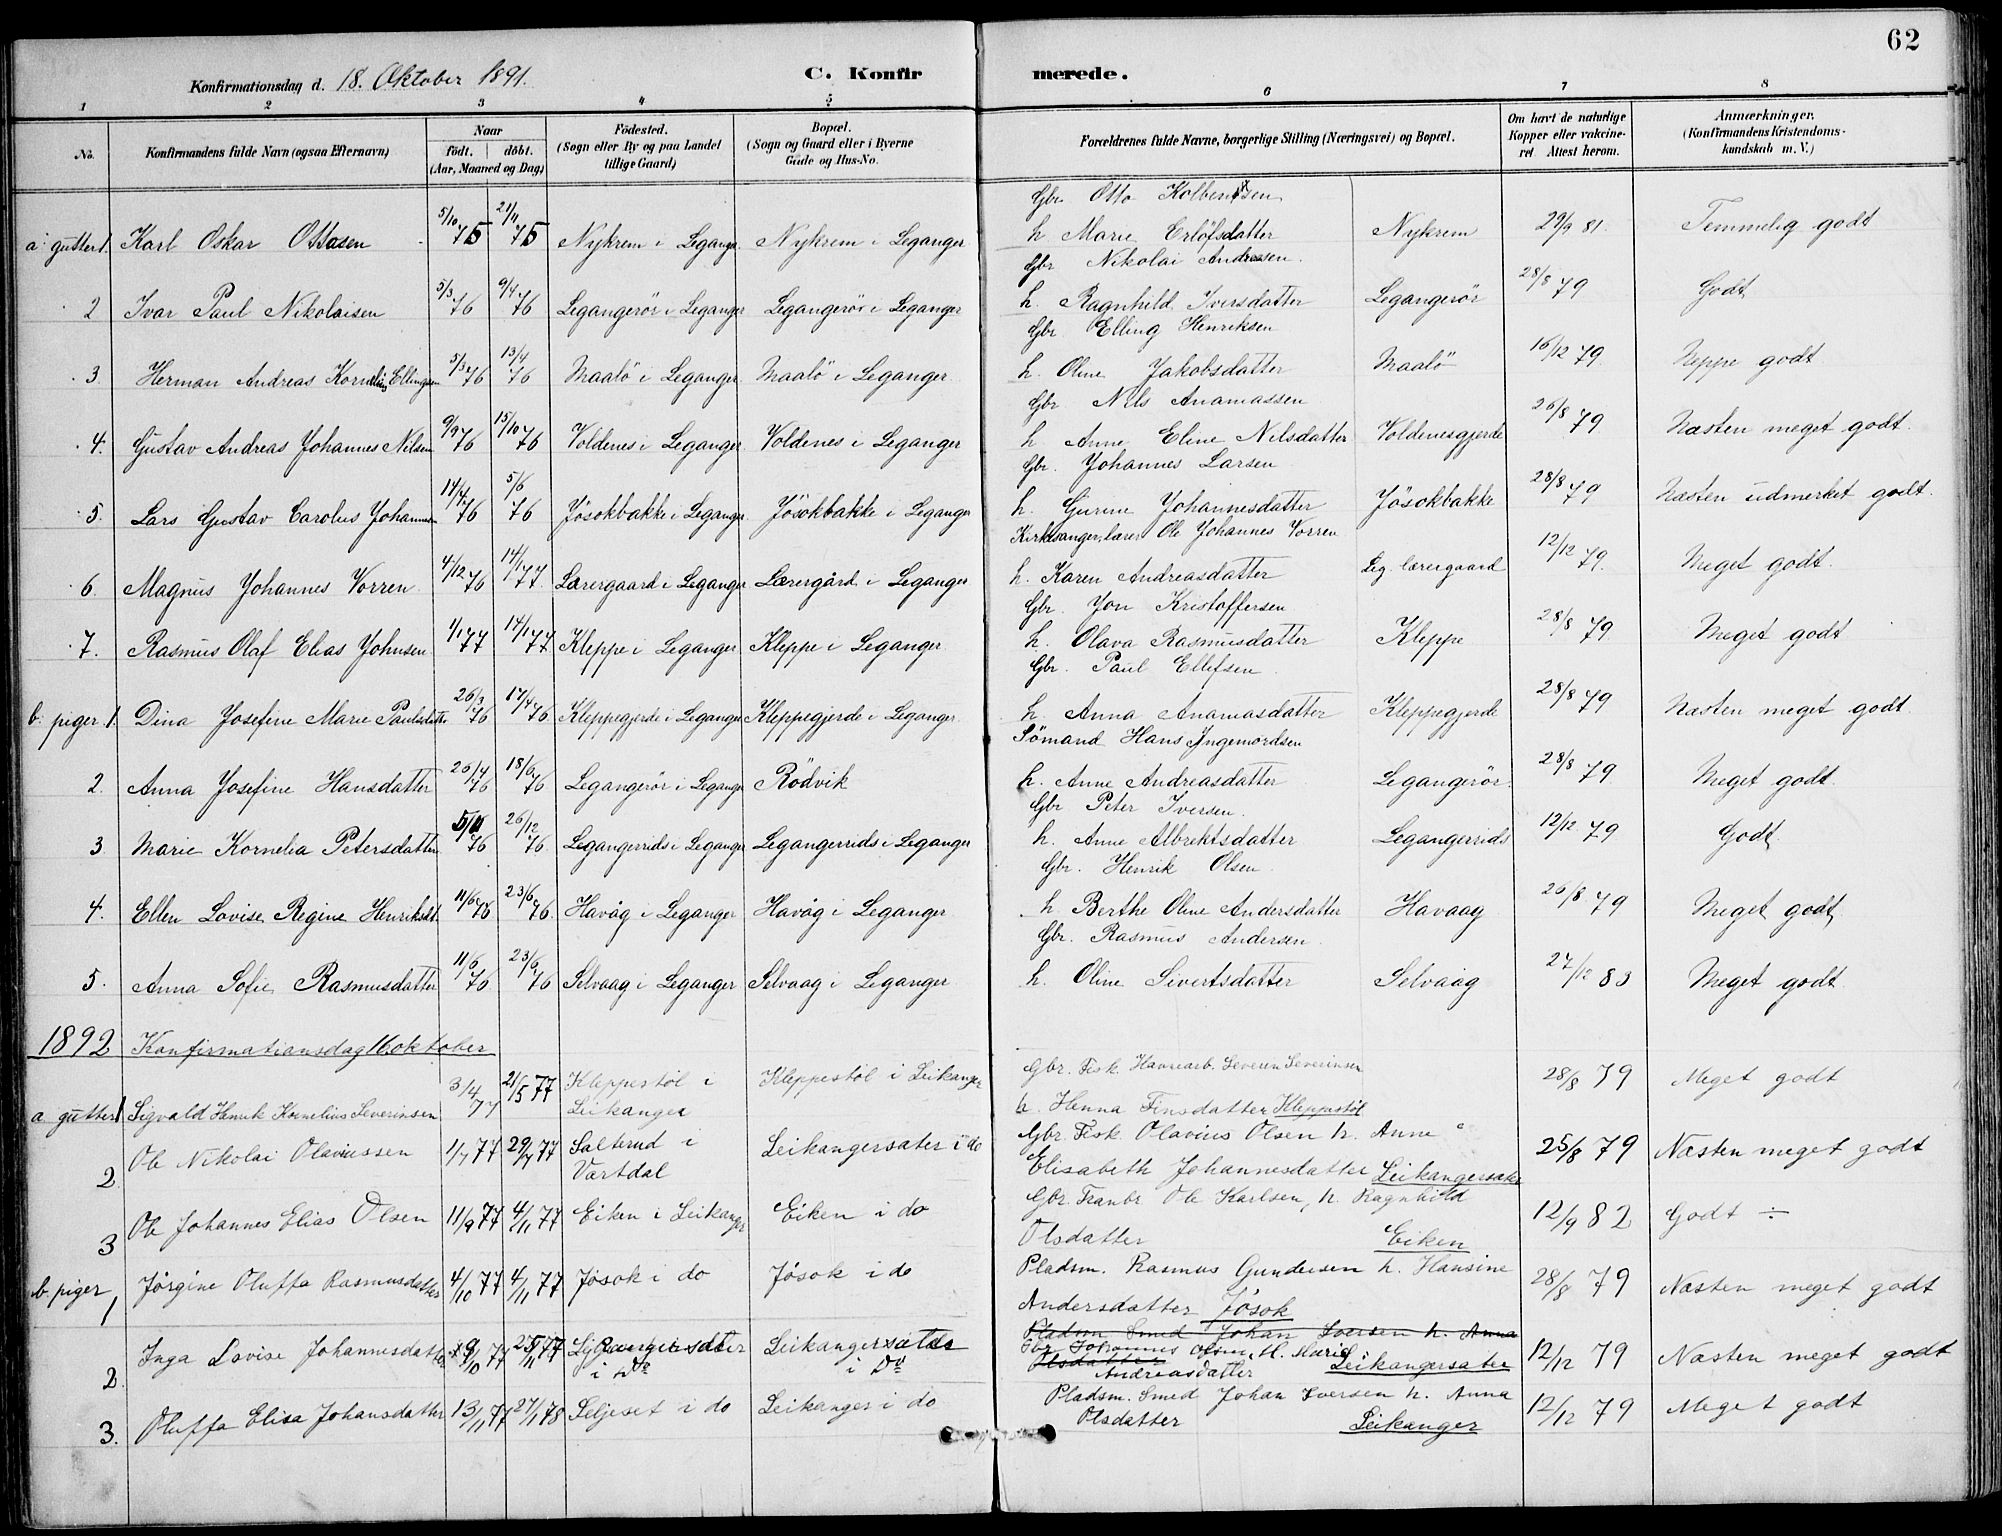 62
Konfirmationsdag d. 18. Oktober 1891. C. Konfirmerede.
1 2 3 4 5 6 7 8
No. Konfirmandens fulde Navn (ogsaa Efternavn) Naar födt. döbt. (Aar, Maaned og Dag) Födested. (Sogn eller By og paa Landet tillige Gaard) Bopæl. (Sogn og Gaard eller i Byerne Gade og Hus-No. Forældrenes fulde Navne, borgerlige Stilling (Næringsvei) og Bopæl. Om havt de naturlige Kopper eller vaccineret. Attest herom. Anmærkninger. (Konfirmandens Kristendomskundskab m. V.)
Gbr. Otto Kolbentsen
a gutter 1. Karl Oskar Ottosen 5/10 75 21/11 75 Nykrem i Leganger Nykrem i Leganger h Marie Erlöfsdatter Nykrem 29/9 81. Temmelig godt
Gbr Nikolai Andreasen.
2 Ivar Paul Nikolaisen 5/3 76 9/4 76 Legangerör i Leganger Legangerör i Leganger h. Ragnhild Iversdatter Legangerör 28/8 79 Godt
Gbr Elling Henriksen
3. Herman Andreas Kornelius Ellingsen 5/3 76 13/4 76 Maalö i Leganger Maalö i Leganger h. Oline Jakobsdatter Maalö 16/12 79. Neppe godt
Gbr. Nils Anamassen
4. Gustav Andreas Johannes Nilsen 9/9 76 15/10 76 Voldenes i Leganger Voldenes i Leganger h Anne Eline Nilsdatter Voldenesgjerde 26/8 79 Næsten meget godt.
Gbr. Johannes Larsen
5. Lars Gustav Carolus Johannesen 14/4 76 5/6 76 Jösokbakke i Leganger Jösokbakke i Leganger h. Gurine Johannesdatter Jösokbakke 28/8 79 Næsten udmerket godt.
Kirkesanger, lærer Ole Johannes Vorren
6. Magnus Johannes Vorren 4/12 76 14/1 77. Lærergaard i Leganger Lærergård i Leganger h. Karen Andreasdatter Leg. lærergaard 12/12 79. Meget godt.
Gbr. Jon Kristoffersen
7. Rasmus Olaf Elias Johnsen 1/1 77 14/1 77 Kleppe i Leganger Kleppe i Leganger h. Olava Rasmusdatter Kleppe 28/8 79 Meget godt
Gbr. Paul Ellefsen
b. piger 1. Dina Josefine Marie Paulsdatte 26/3 76 17/4 76 Kleppegjerde i Leganger Kleppegjerde i Leganger h. Anna Anamasdatter Kleppegjerde 28/8 79 Næsten meget godt.
Sömand Hans Ingemordsen
2. Anna Josefine Hansdatter 26/4 76 18/6 76 Legangerör i Leganger Rödvik h. Anne Andreasdatter Legangerör. 28/8 79 Meget godt.
Gbr Peter Iversen.
3 Marie Kornelia Petersdatter 76 26/12 76. Legangerrids i Leganger Legangerrids i Leganger h. Anne Albrektsdatter Legangerrids 12/12 79 Godt
Gbr. Henrik Olsen.
4. Ellen Lovise Regine Henriksdt 11/6 76 23/6 76. Havåg i Leganger Havåg i Leganger h. Berthe Oline Andersdatter Havaag 26/8 79 Meget godt
Gbr. Rasmus Andersen
5. Anna Sofie Rasmusdatter 11/6 76 23/6 76 Selvaag i Leganger Selvaag i Leganger h. Oline Sivertsdatter Selvaåg 27/12 83 Meget godt
1892 Konfirmationsdag 16 oktober
Gbr. Fisk. Havnearb. Severin Severinsen
a gutter 1 Sigvald Henrik Kornelius Severinsen 3/4 77 21/5 77 Kleppestöl i Leikanger Kleppestöl i Leikanger h. Henna Finsdatter Kleppestöl 28/8 79 Meget godt
Gbr. Fisk. Olavius Olsen h. Anne
2 Ole Nikolai Olaviussen 1/7 77 29/7 77 Salterud i Vartdal Leikangersater i do Elisabeth Johannesdatter Leikangersater 25/8 79 Næsten meget godt
Gbr. Tranbr. Ole Karlsen, h. Ragnhild
3 Ole Johannes Elias Olsen 11/9 77 4/11 77 Eiken i Leikanger Eiken i do Olsdatter Eiken 12/9 82 Godt ÷
Pladsm. Rasmus Gundersen h. Hansine
b. piger 1 Jörgine Oluffa Rasmusdatter 4/10 77 4/11 77 Jösok i do Jösok i do Andersdatter Jösok 28/8 79 Næsten meget godt
Pladsm Smed Johan Iversen h. Anna
Olsdatter
Gbr Johannes Olsen, H. Marie Andreasdatter Leikangersater
2. Inga Lovise Johannesdatter 77 25/11 77 i Do Leikangersater i Do 12/12 79 Næsten meget godt
Pladsm. Smed Johan Iversen h. Anna
3. Oluffa Elisa Johansdatter 13/11 77 27/1 78 Seljeset i do Leikanger i do Olsdatter Leikanger 12/12 79 Meget godt